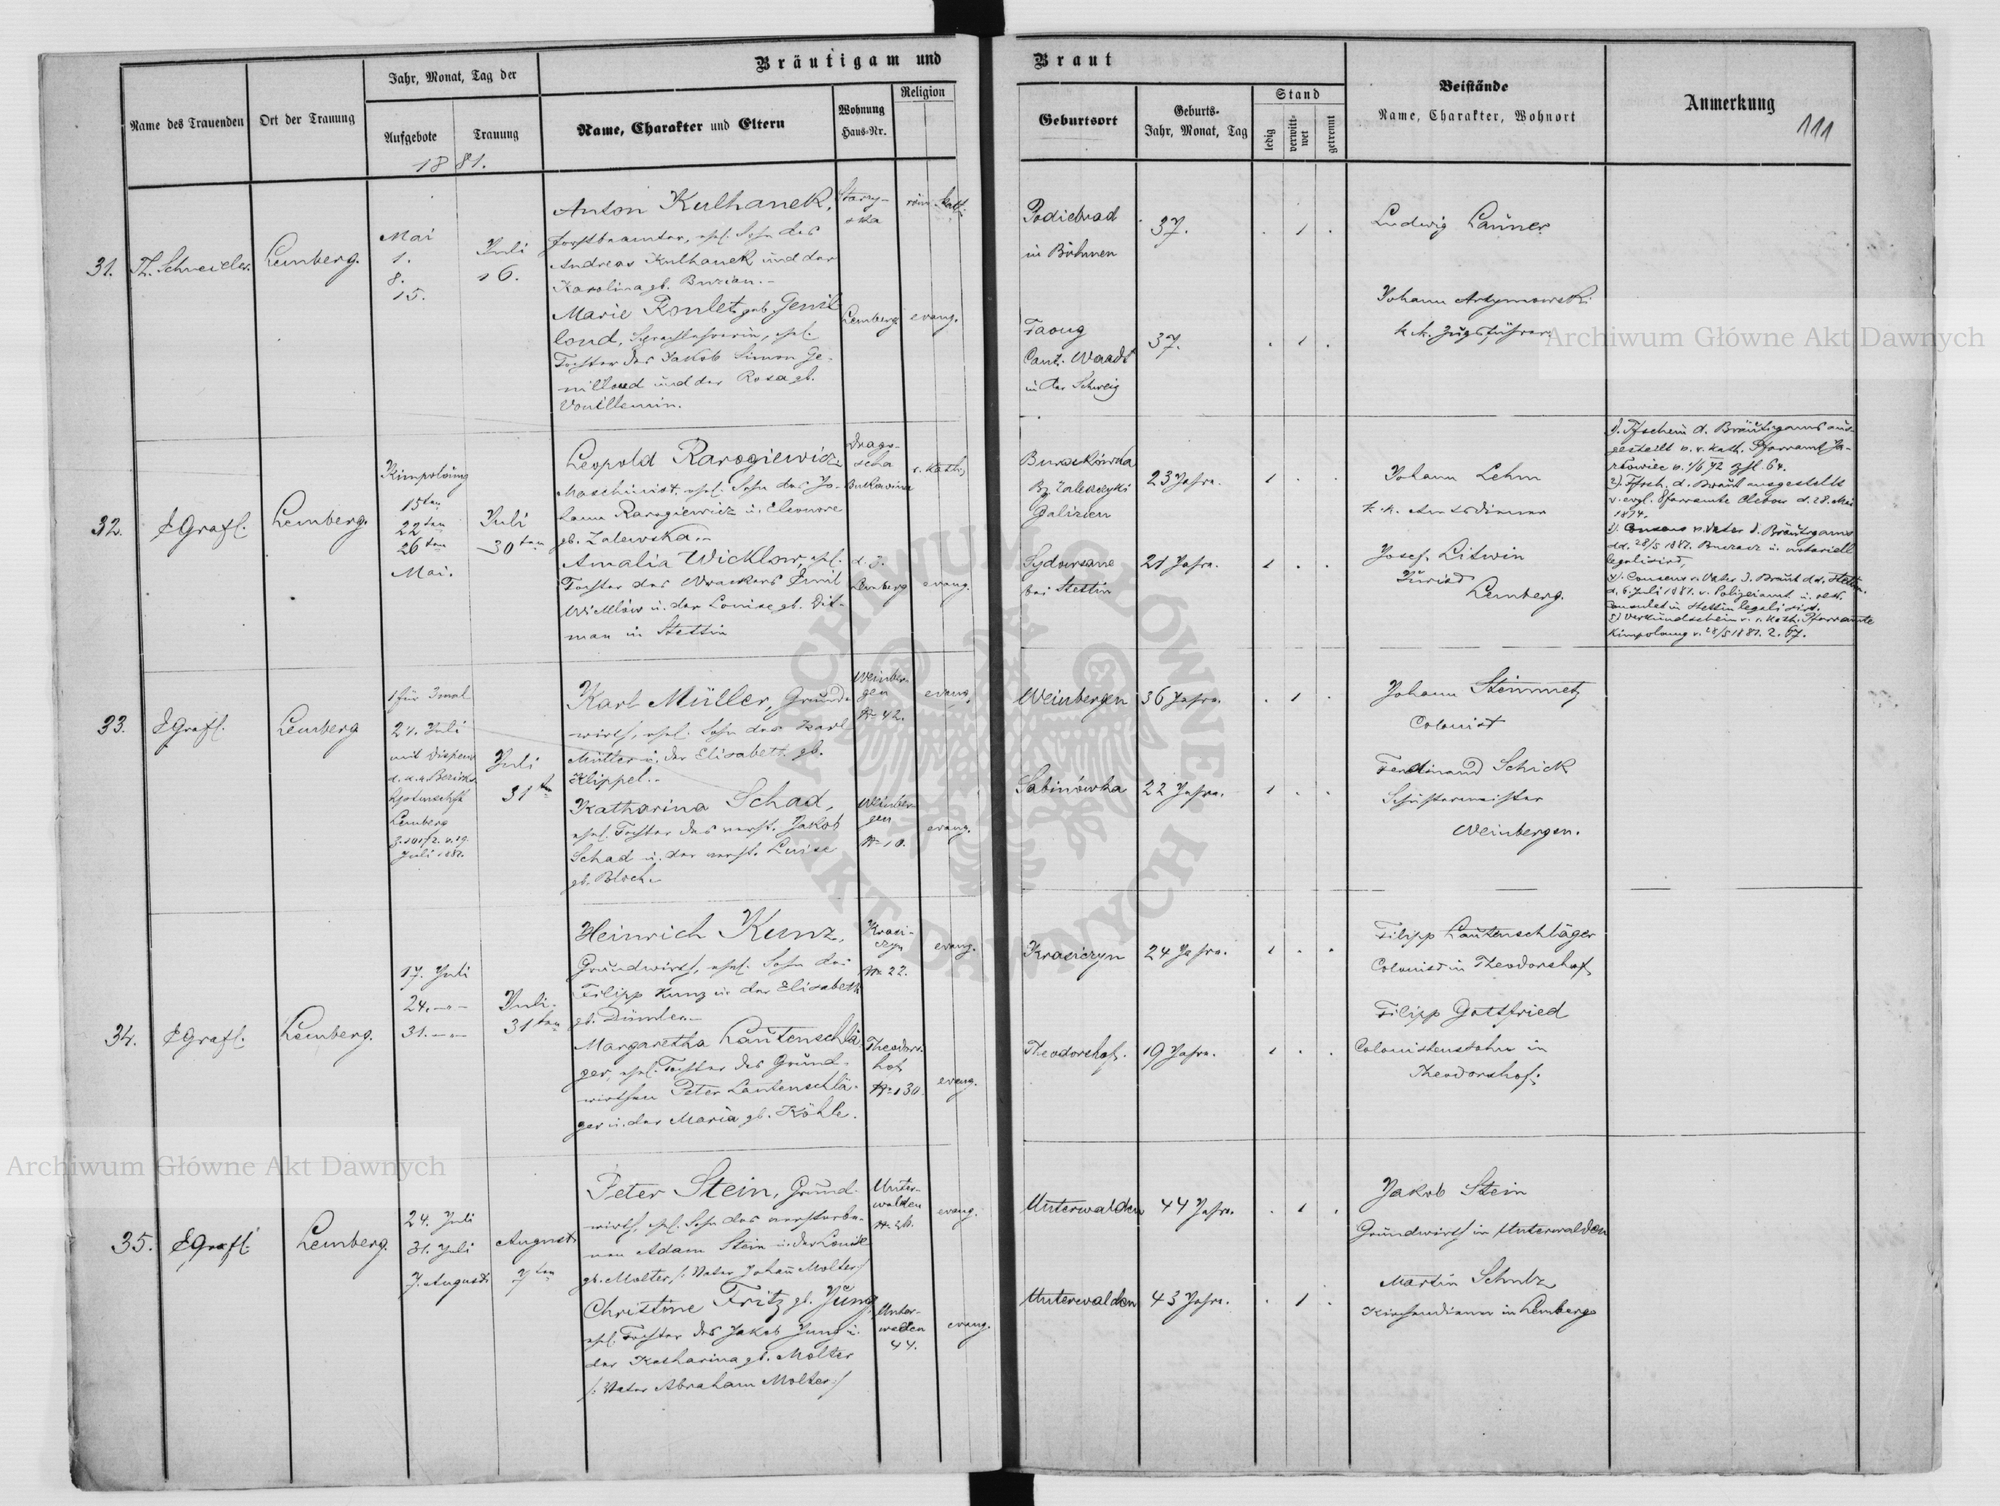 Bräutigam und Braut
Name des Trauenden
Ort der Trauung
Jahr, Monat, Tag der
Aufgebote
Trauung
Name, Charakter und Eltern
Wohnung
Haus-Nr.
Religion
Geburtsort
Geburts-
Jahr, Monat, Tag
Stand
ledig
verwitt-
wet
getrennt
Beistände
Name, Charakter, Wohnort
Anmerkung
111
1881.
31.
Th. Schneider.
Lemberg.
Mai
1.
8.
15.
Juli
16.
Anton Kulhanek,
Forstbeamter, ehl. Sohn des
Andreas Kulhanek und der
Karolina gb. Burian.-
röm. kath.
Podiebrad
in Böhmen
37.
Ludwig Launer
Marie Roulet gb. Genil
loud, Sprachlehrerin, ehl.
Tochter des Jakob Simon Ge-
nilloud und der Rosa gb.
Vouillemin.
Lemberg
evang.
Faoug
Cant. Waadt
in der Schweiz
37.
Johann Artymowski
k.k. Zugsführer
32.
EGrafl.
Lemberg.
Kimpolung
15ten
22ten
26ten
Mai.
Juli
30ten
Leopold Rarogiewicz
Maschinist, ehl. Sohn des Jo-
hann Rarogiewicz u. Eleonore
gb. Zalewska.-
Drago-
scha
Bukowina
r. kath.
Burakówka
Bz. Zaleszczyki
Galizien
23 Jahre.
Johann Lehm
k.k. Amtsdiener
Amalia Wicklow, ehl.
Tochter des Wrackers Emil
Wicklow u. der Louise gb. Dit-
man in Stettin
d. Z.
Lemberg
evang.
Sydowsaue
bei Stettin
21 Jahre.
Josef Litwin
Jurist
Lemberg.
1). Tfschein d. Bräutigams aus-
gestellt v. r. kath. Pfarramt Ja-
2). Tfsch. d. Braut ausgestellt
v. evgl. Pfarramte d. 28. Mai
1874.
3). Consens v. Vater d. Bräutigams
dd. 28/5 1881. Buczacz u. notariell
legalisirt,
4). Consens v. Vater d. Braut dd. Stettin
d. 6. Juli 1881. v. Polizeiamt u. öst.
Consulat in Stettin legalisirt.
5) Verkündschein v. r. kath. Pfarramte
Kimpolung v. 28/5 1881. Z. 67.
33.
EGrafl.
Lemberg
1 für 3mal
24. Juli
mit Dispens
d. d. k. Bezirks
Lemberg
Juli 1881.
Juli
31ten
Karl Müller, Grund-
wirth, ehl. Sohn des Karl
Müller u. der Elisabeth gb.
Klippel.-
Weinber-
gen
Nr 42.
evang.
Weinbergen
36 Jahre.
Johann Steinmetz
Colonist
Katharina Schad,
ehl. Tochter des verst. Jakob
Schad u. der verst. Luise
gb. Bloch.-
Weinber-
gen
Nr 10.
evang.
Sabinówka
22 Jahre.
Ferdinand Schick
Schustermeister
Weinbergen.
34.
EGrafl.
Lemberg.
17. Juli
24. -"-
31. -"-
Juli
31ten
Heinrich Kunz,
Grundwirth, ehl. Sohn des
Filipp Kunz u. der Elisabeth
gb. Dümler.-
Krasi-
czyn
Nr 22.
evang.
Krasiczyn
24 Jahre.
Filipp Lautenschläger
Colonist in Theodorshof
Margaretha Lautenschlä
ger, ehl. Tochter des Grund-
wirthen Peter Lautenschlä-
ger u. der Maria gb. Köhle.
Theodors-
hof
Nr 130.
evang.
Theodorshof.
19 Jahre.
Filipp Gottfried
Colonistensohn in
Theodorshof.
35.
EGrafl.
Lemberg.
24. Juli
31. Juli
7. August
August
7ten
Peter Stein, Grund-
wirth, ehl. Sohn des verstorbe-
nen Adam Stein u. der Louise
gb. Molter /: Vater Johann Molter :/
Unter-
walden
Nr 26.
evang.
Unterwalden
44 Jahre.
Jakob Stein
Grundwirth in Unterwalden
Christine Fritz gb. Jung
ehl. Tochter des Jakob Jung u.
der Katharina gb. Molter
/: Vater Abraham Molter :/
Unter-
walden
44.
evang.
Unterwalden
43 Jahre.
Martin Schulz
Kirchendiener in Lemberg
Archiwum Główne Akt Dawnych
Archiwum Główne Akt Dawnych
ARCHIWUM GŁÓWNE AKT DAWNYCH